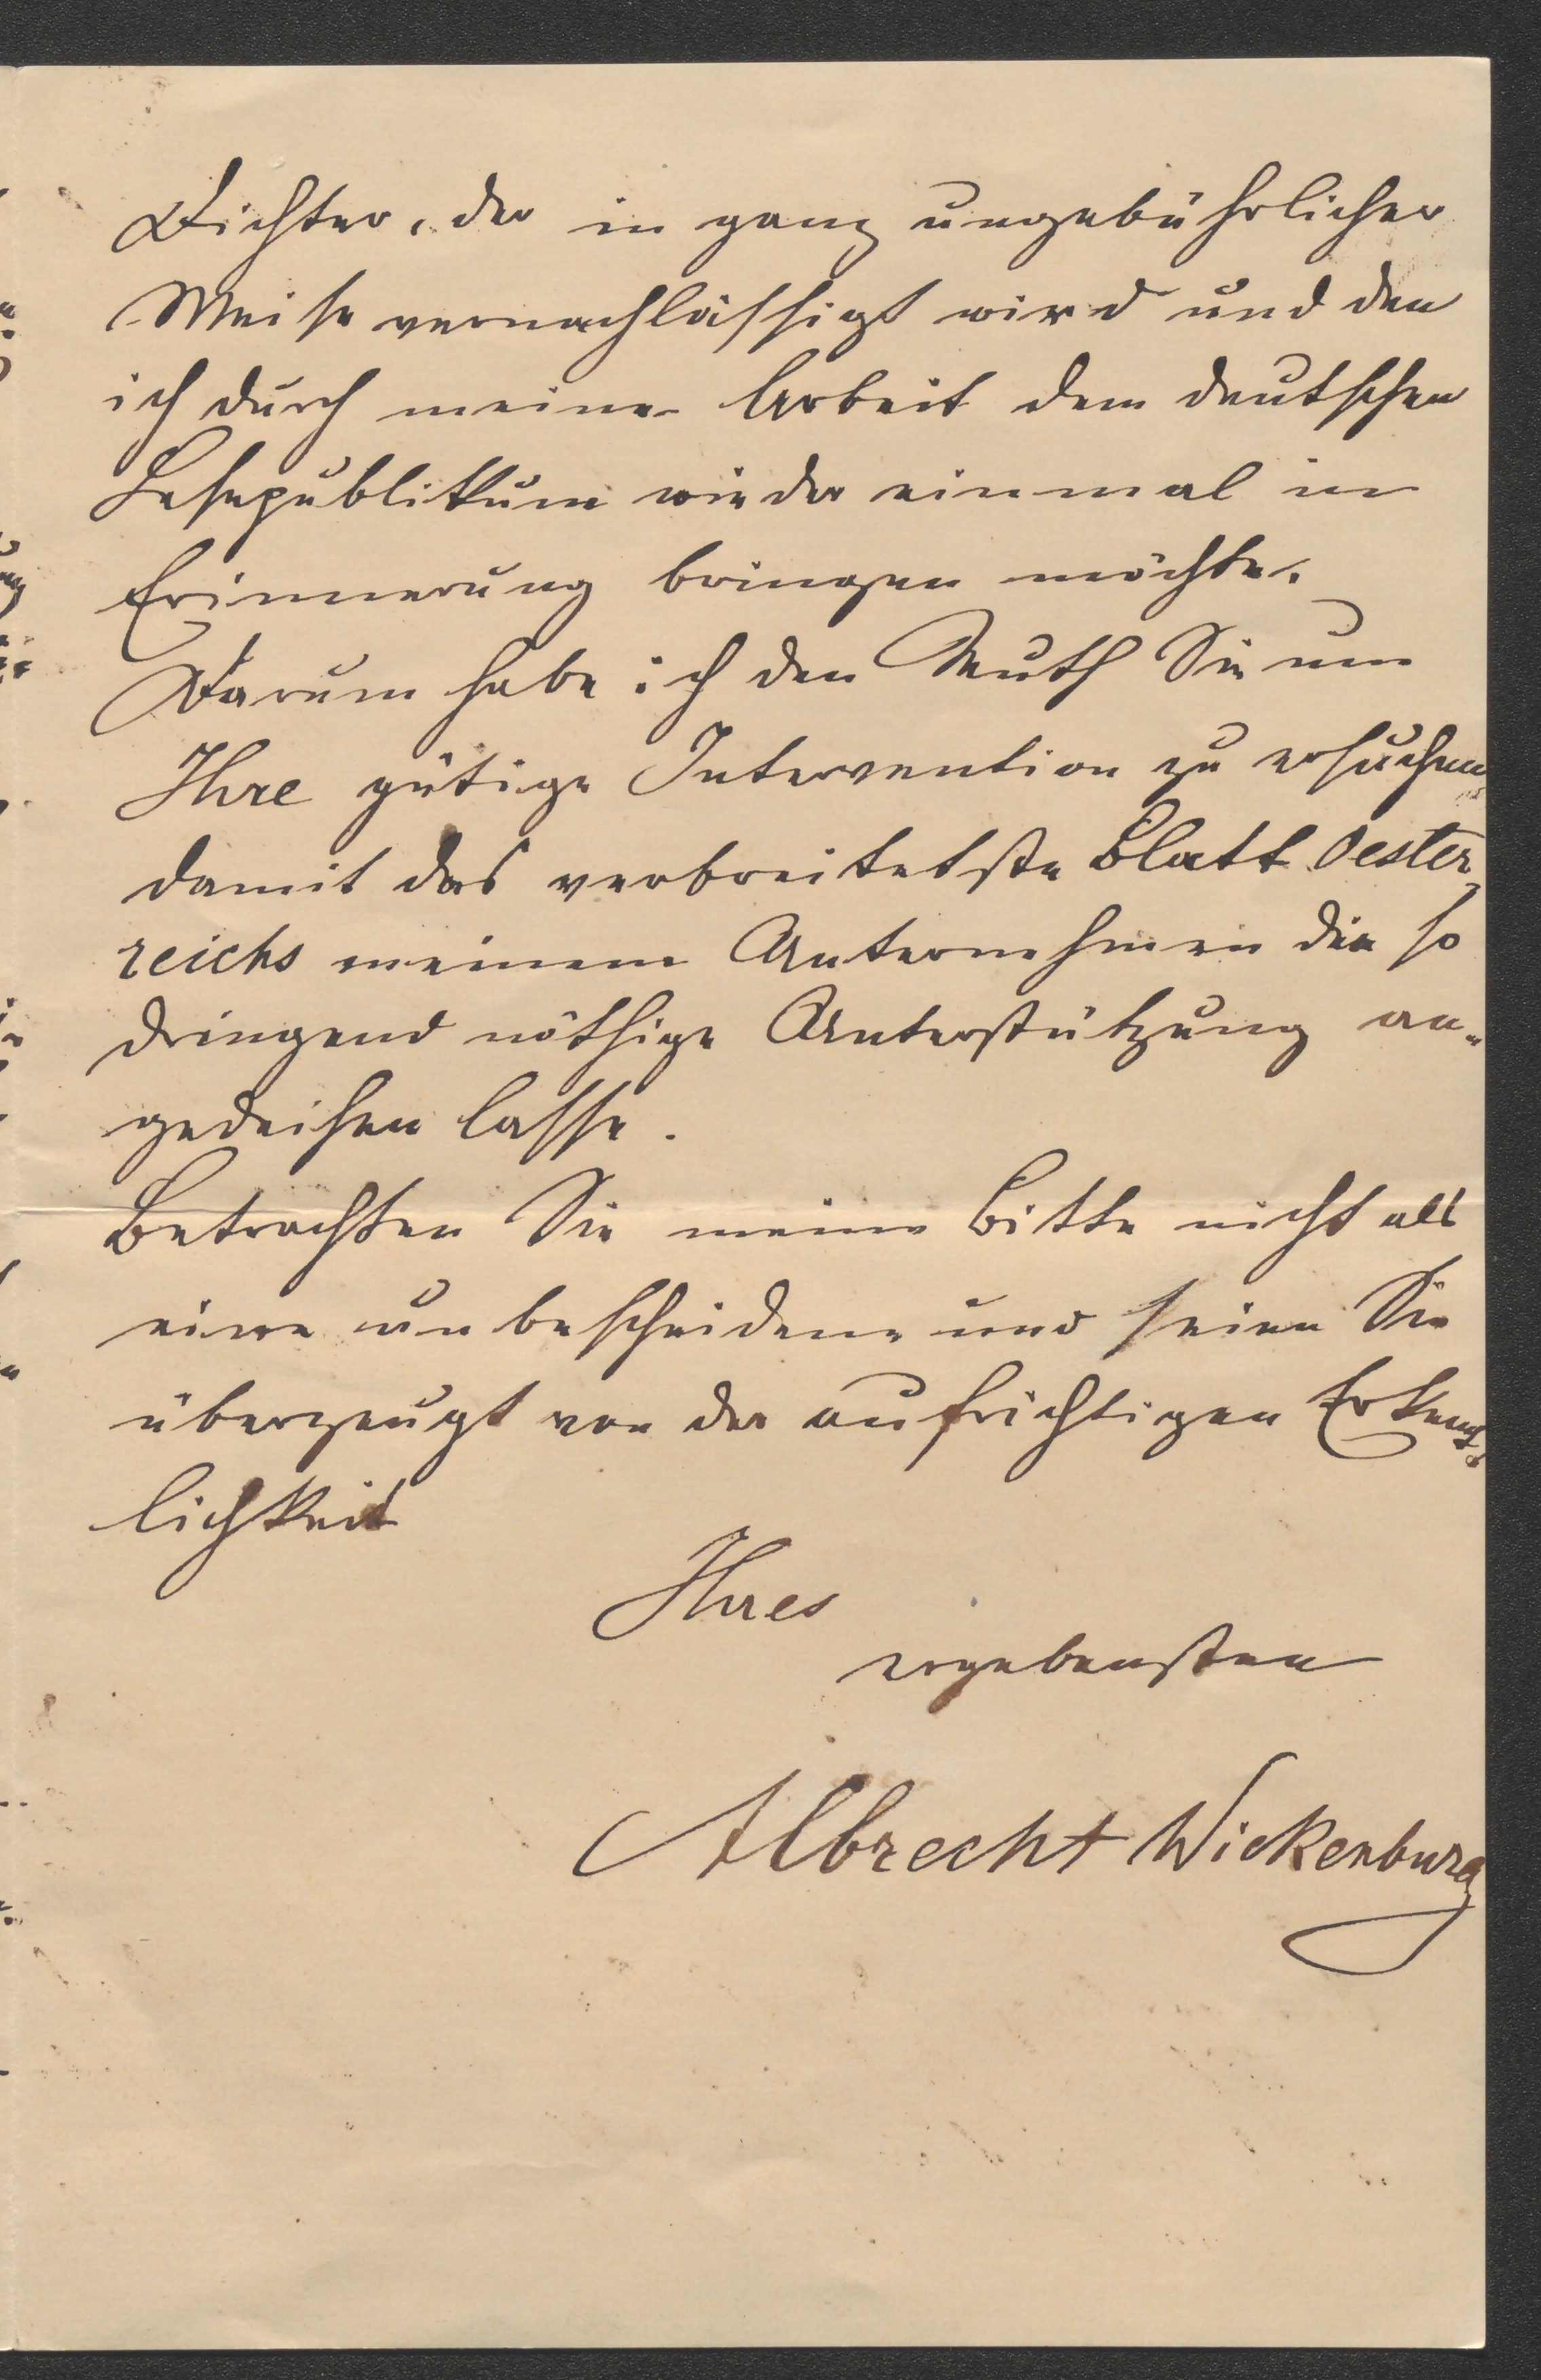 Dichter, der in ganz ungebührlicher
Weise vernachlässigt wird und den
ich durch meine Arbeit dem deutschen
Lesepublikum wieder einmal in
Erinnerung bringen möchte.
Darum habe ich den Muth Sie um
Ihre gütige Intervention zu ersuchen,
damit das verbreitetste Blatt Oester-
reichs meinem Unternehmen die so
dringend nöthige Unterstützung an-
gedeihen lasse.
Betrachten Sie meine Bitte nicht als
eine unbescheidene und seien Sie
überzeugt von der aufrichtigen Erkennt-
lichkeit
Ihres
ergebensten
Albrecht Wickenburg